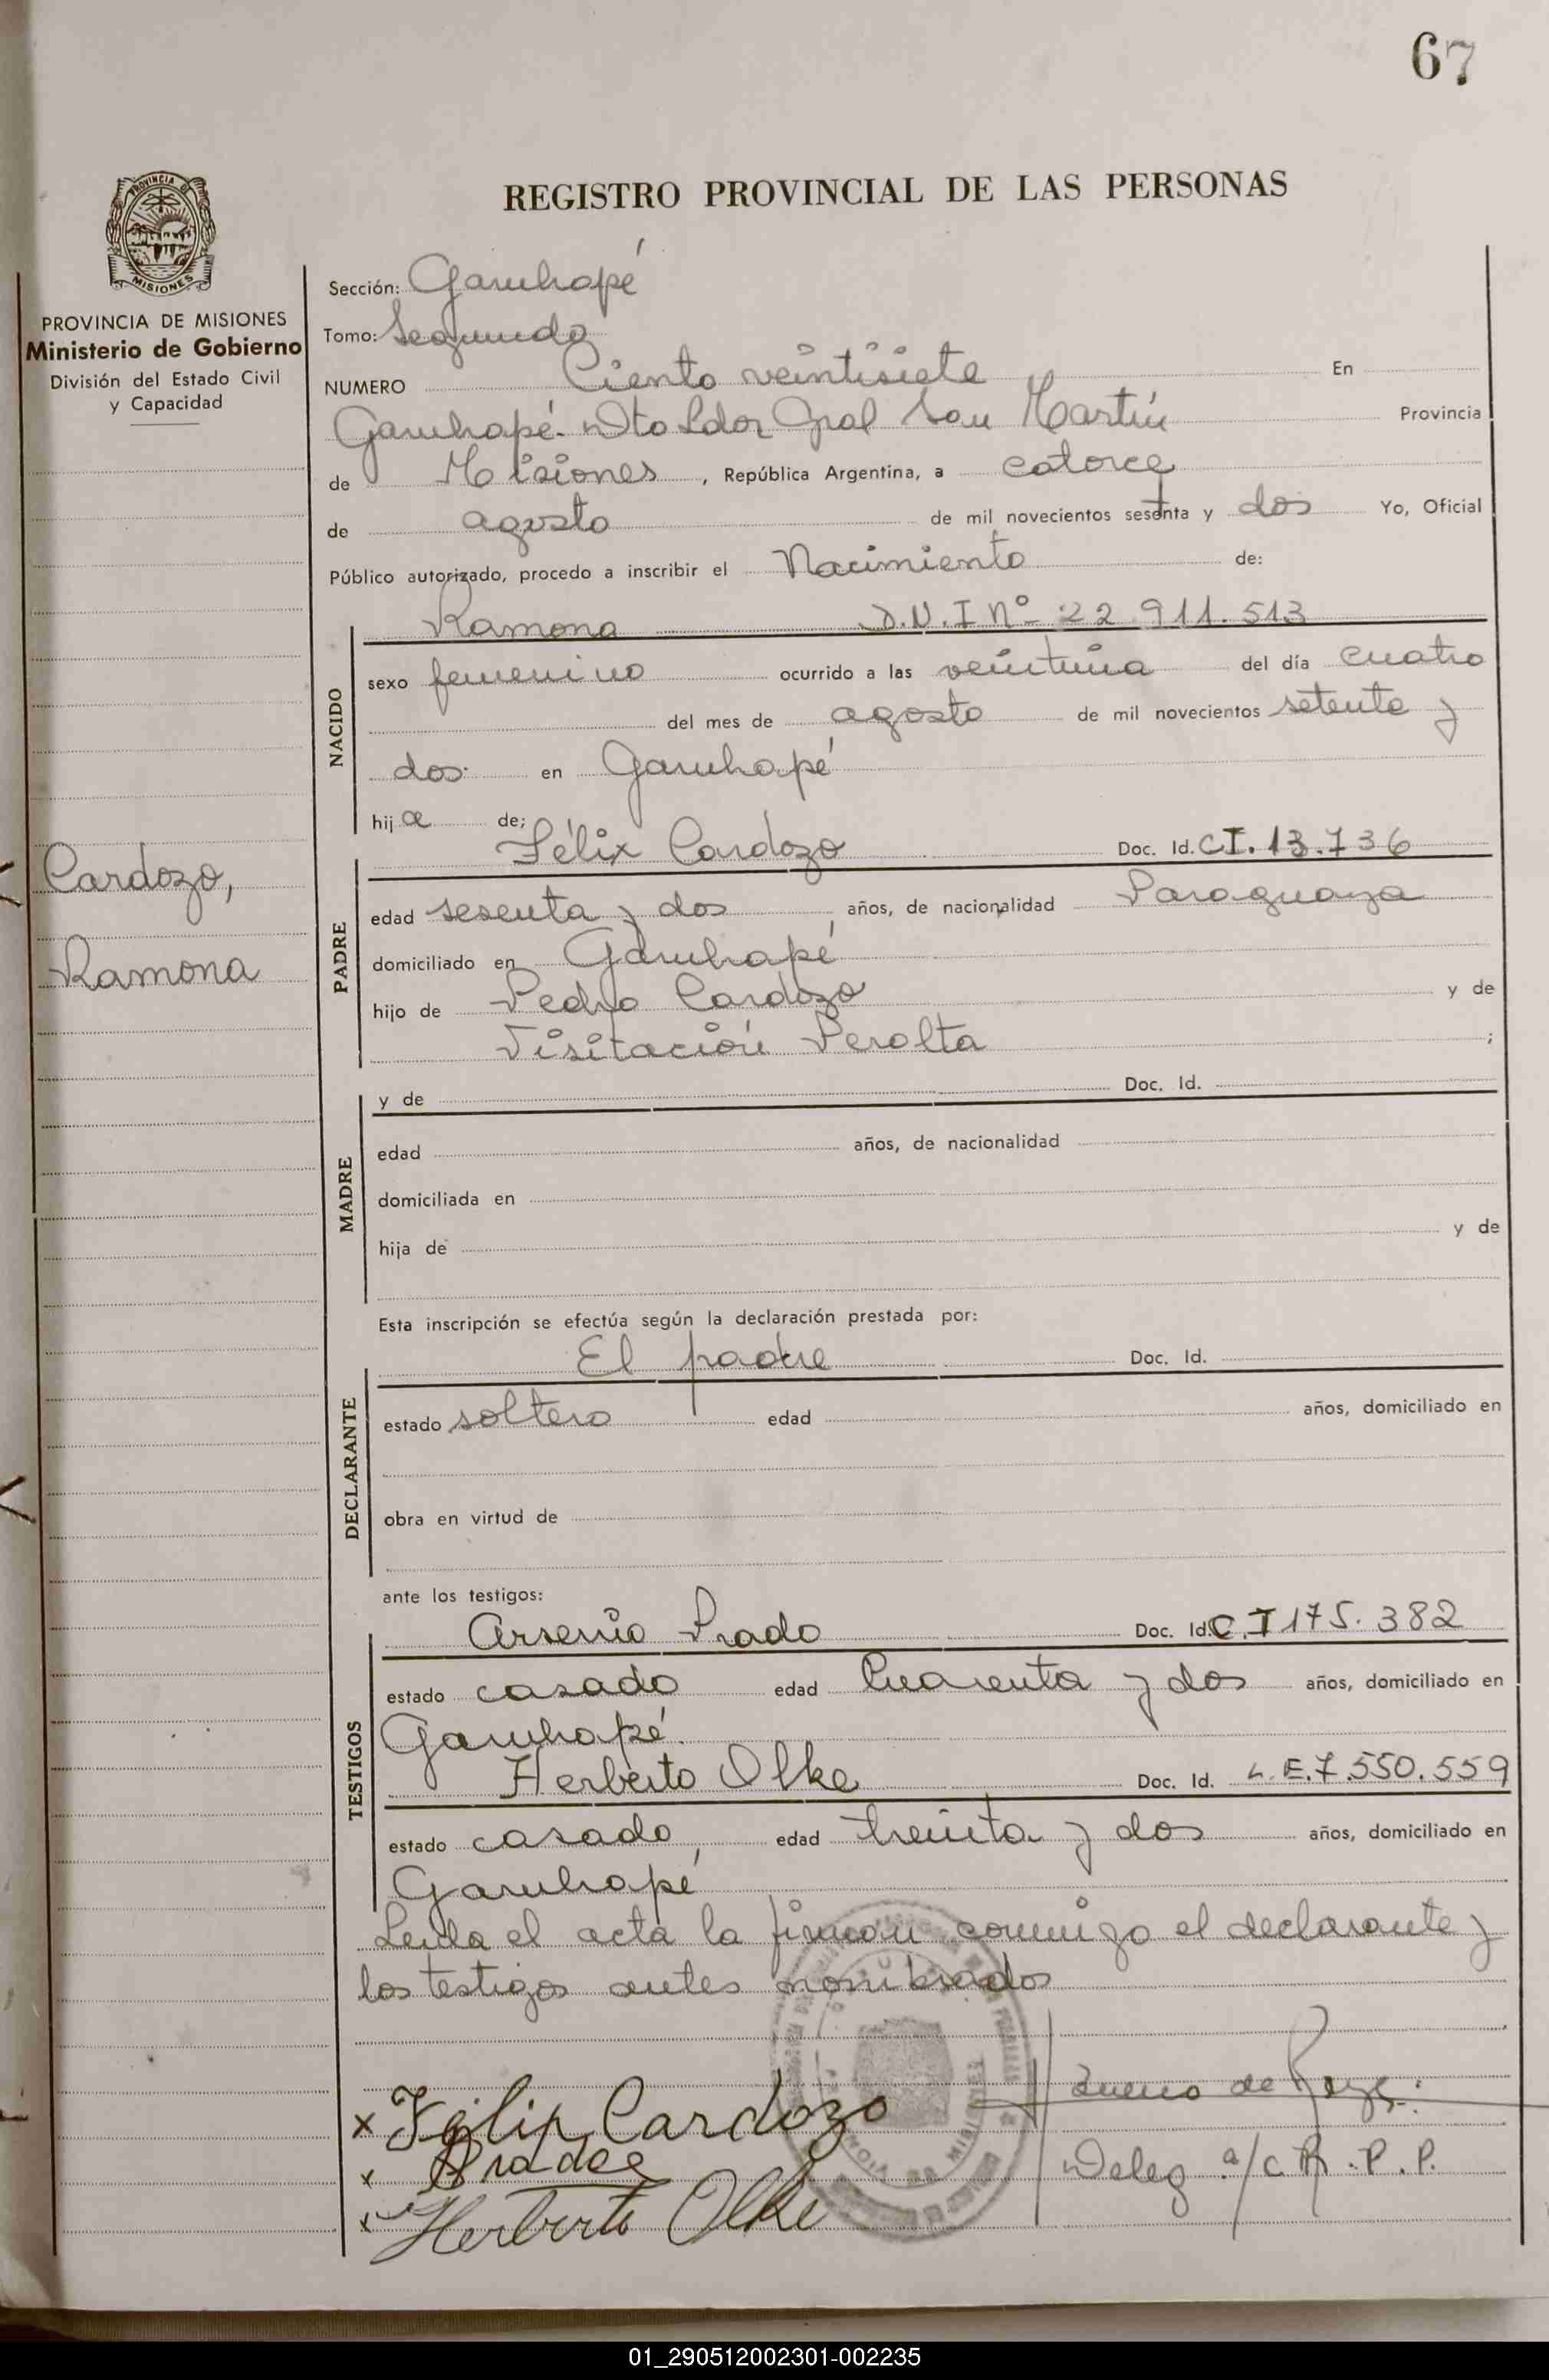 67
REGISTRO PROVINCIAL DE LAS PERSONAS
PROVINCIA DE MISIONES
Ministerio de Gobierno
División del Estado Civil
y Capacidad
Cardozo,
Ramona
Sección: Garuhapé
Tomo: Segundo
NUMERO Ciento veintisiete En
Garuhapé. Dto Ldor Gral San Martín Provincia
de Misiones, República Argentina, a catorce
de agosto de mil novecientos sesenta y dos Yo, Oficial
Público autorizado, procedo a inscribir el Nacimiento de:
Ramona D.N.I Nº 22.911.513
NACIDO
sexo femenino ocurrido a las veintuna del día cuatro
del mes de agosto de mil novecientos setenta y
dos. en Garuhapé
hija de;
Félix Cardozo Doc. Id. CI. 13.736
PADRE
edad sesenta y dos años, de nacionalidad Paraguaya
domiciliado en Garuhapé
hijo de Pedro Cardozo y de
Visitación Peralta ;
MADRE
y de Doc. Id.
edad años, de nacionalidad
domiciliada en
hija de y de
Esta inscripción se efectúa según la declaración prestada por:
El padre Doc. Id.
DECLARANTE
estado soltero edad años, domiciliado en
obra en virtud de
ante los testigos:
Arsenio Prado Doc. Id. C.I 175.382
TESTIGOS
estado casado edad Cuarenta y dos años, domiciliado en
Garuhapé.
Herberto Olke Doc. Id. L.E.7.550.559
estado casado edad treinta y dos años, domiciliado en
Garuhapé
Leida el acta la firman conmigo el declarante y
los testigos antes nombrados
x Felix Cardozo
x
x Herberto Olke
Deleg a/c R.P.P.
01_290512002301-002235